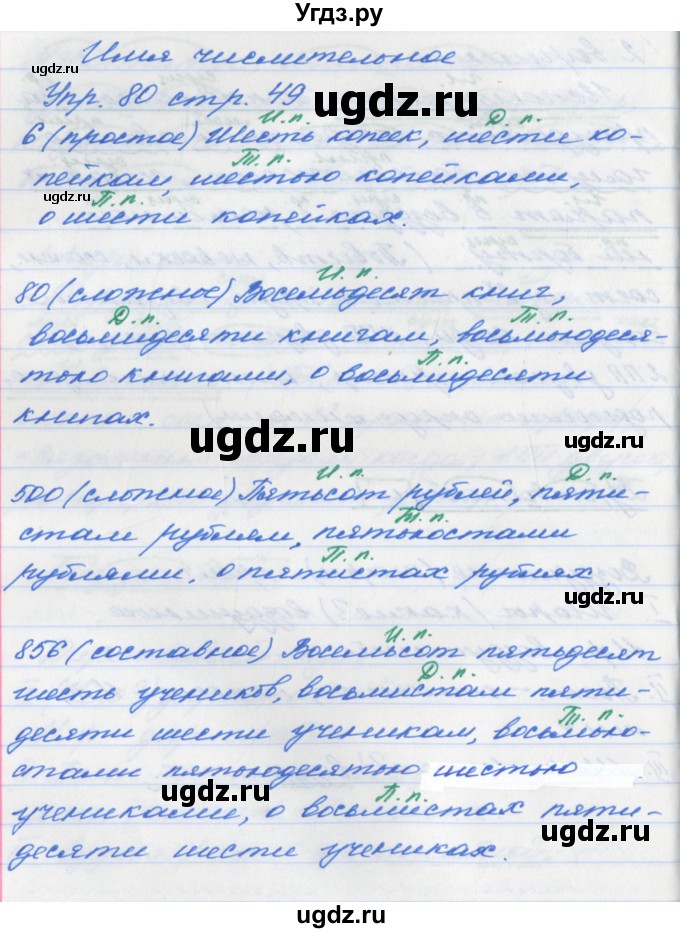 Угдз.ру
Имя числительное
ugdz.ru
Упр. 80 стр. 49
ugdz.ru
И.п. Д.п.
6 (простое) Шесть копеек, шести ко-
Т.п.
пейкам, шестью копейками,
ugdz.ru
П.п.
о шести копейках.
И.п.
80 (сложное) Восемьдесят книг,
Д.п. Т.п.
восьмидесяти книгам, восьмьюдеся-
П.п.
тью книгами, о восьмидесяти
ugdz.ru
книгах.
ugdz.ru
И.п. Д.п.
500 (сложное) Пятьсот рублей, пяти-
Т.п.
стам рублям, пятьюстами
П.п.
рублями, о пятистах рублях
ugdz.ru
И.п.
856 (составное) Восемьсот пятьдесят
Д.п.
шесть учеников, восьмистам пяти-
Т.п.
десяти шести ученикам, восьмью-
стами пятьюдесятью шестью
ugdz.ru
П.п.
учениками, о восьмистах пяти-
ugdz.ru
десяти шести учениках.
ugdz.ru